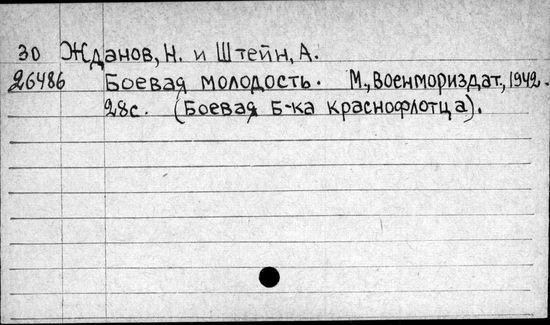 30 Жданов, Н. и Штейн, А.
26486 Боевая молодость. М., Военмориздат, 1942.
28с. (Боевая Б-ка краснофлотца).